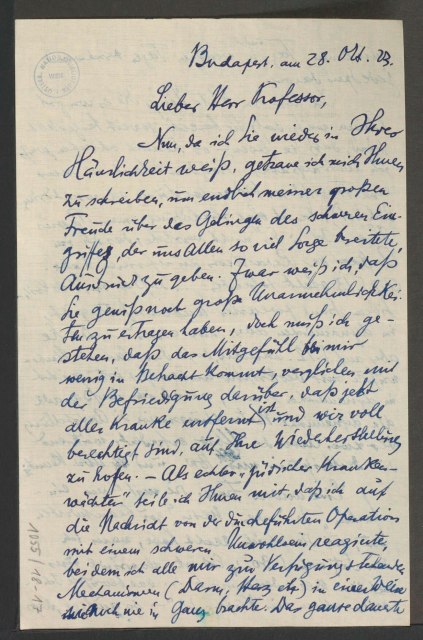 Budapest, am 28. Okt. 23.
Lieber Herr Professor,
Nun, da ich Sie wieder in Ihrer
Häuslichkeit weiß, getraue ich mich Ihnen
zu schreiben, um endlich meiner großen
Freude über das Gelingen des schweren Ein-
griffes, der uns Allen so viel Sorge bereitete,
Ausdruck zu geben. Zwar weiß ich, daß
Sie gewiß noch große Unannehmlichkei-
ten zu ertragen haben, doch muß ich ge-
stehen, daß das Mitgefühl bei mir
wenig in Betracht kommt, verglichen mit
der Befriedigung darüber, daß jetzt
alles Kranke entfernt ist und wir voll
berechtigt sind, auf Ihre Wiederherstellung
zu hoffen. – Als echter „jüdischer Kranken-
wächter" teile ich Ihnen mit, daß ich auf
die Nachricht von der durchgeführten Operation
mit einem schweren Unwohlsein reagierte,
bei dem ich alle mir zur Verfügung stehenden
Mechanismen (Darm, Herz etc) in einer Weise
wie noch nie in Gang brachte. Das ganze dauerte
1055/18-17